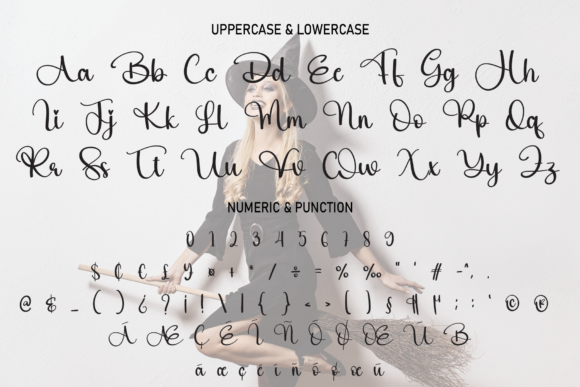 UPPERCASE & LOWERCASE
Aa Bb Cc Dd Ee Ff Gg Hh
Ii Jj Kk Ll Mm Nn Oo Pp Qq
Rr Ss Tt Uu Vv Ww Xx Yy Zz
NUMERIC & PUNCTION
0 1 2 3 4 5 6 7 8 9
$ ₵ £ ¥ ¤ + * / ÷ = % ‰ " ' # - ^ , .
@ $ _ ( ) ¿ ? ¡ ! \ | { } < > [ ] § ¶ ; : ' © ®
Ã Æ Ç É Ï Ñ Õ Ø Œ Ü ß
ã æ ç é ï ñ õ ø œ ü